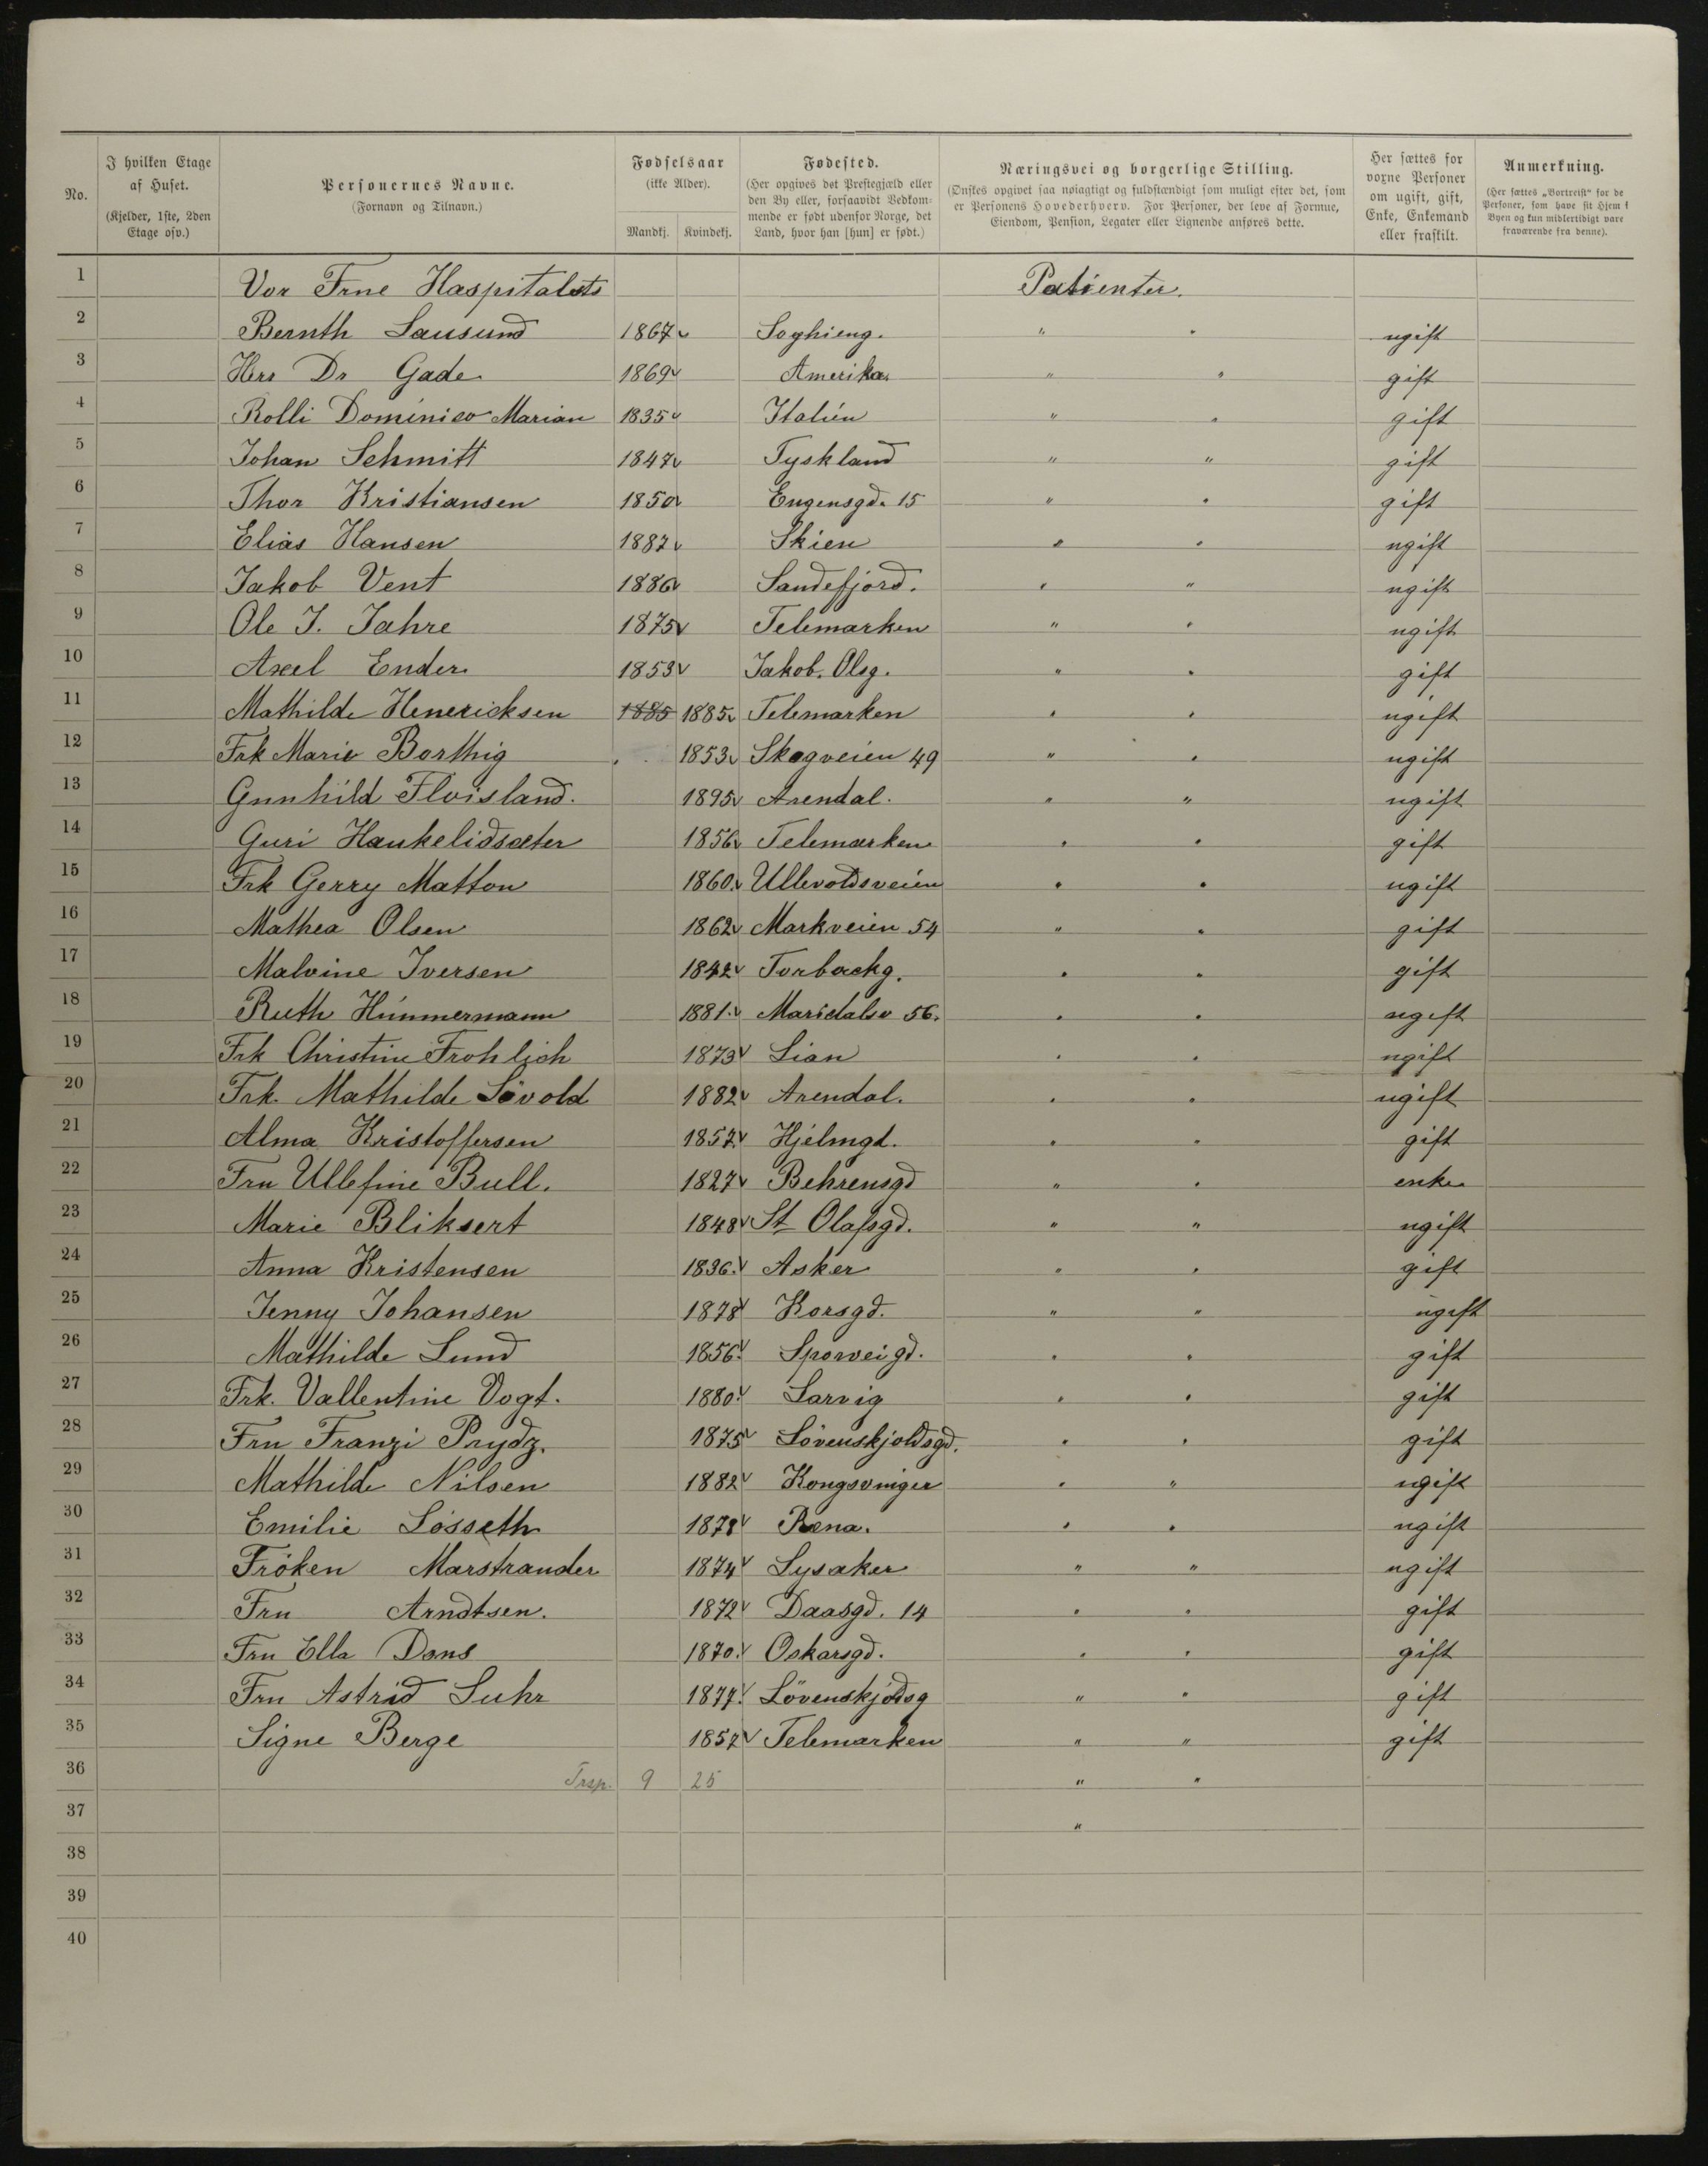 No.
I hvilken Etage af Huset. (Kjelder, 1ste, 2den Etage osv.)
Personernes Navne. (Fornavn og Tilnavn.)
Fødselsaar (ikke Alder). Mandkj. Kvindekj.
Fødested. (Her opgives det Prestegjæld eller den By eller, forsaavidt Vedkommende er født udenfor Norge, det Land, hvor han [hun] er født.)
Næringsvei og borgerlige Stilling. (Ønskes opgivet saa nøiagtigt og fuldstændigt som muligt efter det, som er Personens Hovederhverv. For Personer, der leve af Formue, Eiendom, Pension, Legater eller Lignende anføres dette.)
Her sættes for voxne Personer om ugift, gift, Enke, Enkemand eller fraskilt.
Anmerkning. (Her sættes „Bortreist“ for de Personer, som have sit Hjem i Byen og kun midlertidigt vare fraværende fra denne).
1 Vor Frue Haspitalets Patienter.
2 Bernth Lausund 1867 Soghieng. " " ugift
3 Herr Dr Gade 1869 Amerika " " gift
4 Rolli Dominico Marian 1835 Italien " " gift
5 Johan Schmitt 1847 Tyskland " " gift
6 Thor Kristiansen 1850 Eugensgd. 15 " " gift
7 Elias Hansen 1887 Skien " " ugift
8 Jakob Vent 1886 Sandefjord. " " ugift
9 Ole J. Jahre 1875 Telemarken " " ugift
10 Axel Ender 1853 Jakob. Olsg. " " gift
11 Mathilde Henericksen 1885 1885 Telemarken " " ugift
12 Frk Marie Borthig 1853 Skogveien 49 " " ugift
13 Gunhild Floisland. 1895 Arendal. " " ugift
14 Guri Haukelidsæter 1856 Telemarken " " gift
15 Frk Gerry Matton 1860. Ullevoldsveien " " ugift
16 Mathea Olsen 1862 Markveien 54 " " gift
17 Malvine Iversen 1842 Torbackg. " " gift
18 Ruth Hümmermann 1881. Maridalsv 56. " " ugift
19 Frk Christine Frohlich 1873 Lian " " ugift
20 Frk. Mathilde Sövold 1882 Arendal. " " ugift
21 Alma Kristoffersen 1857 Hjelmgd. " " gift
22 Fru Ullefine Bull. 1827 Behrensgd " " enke
23 Marie Bliksert 1848 St Olafsgd. " " ugift
24 Anna Kristensen 1836. Asker " " gift
25 Jenny Johansen 1878 Korsgd. " " ugift
26 Mathilde Lund 1856. Sporveigd. " " gift
27 Frk. Vallentine Vogt. 1880. Larvig " " gift
28 Fru Franzi Prydz. 1875 Lövenskjoldsgd. " " gift
29 Mathilde Nilsen 1882 Kongsvinger " " ugift
30 Emilie Lösseth 1878 Rena. " " ugift
31 Fröken Marstrander 1874 Lysaker " " ugift
32 Fru Arndtsen. 1872 Daasgd. 14 " " gift
33 Fru Ella Dons 1870. Oskarsgd. " " gift
34 Fru Astrid Luhr 1877. Lövenskjoldsg " " gift
35 Signe Berge 1857 Telemarken " " gift
36 Trsp. 9 25 " "
37 "
38
39
40